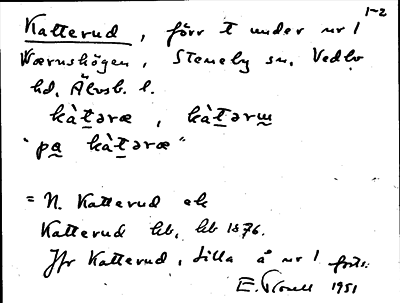 1-2
Katterud, förr t under nr 1
Wærnshögen, Steneby sn, Vedbo
hd, Älvsb. l.
kàt̲əræ, kàt̲ərɯ̲
"pa̲ kàt̲əræ"
= N. Katterud ek
Katterud hb, hb 1876.
Jfr Katterud, Lilla å nr 1 forts.
E. 1951